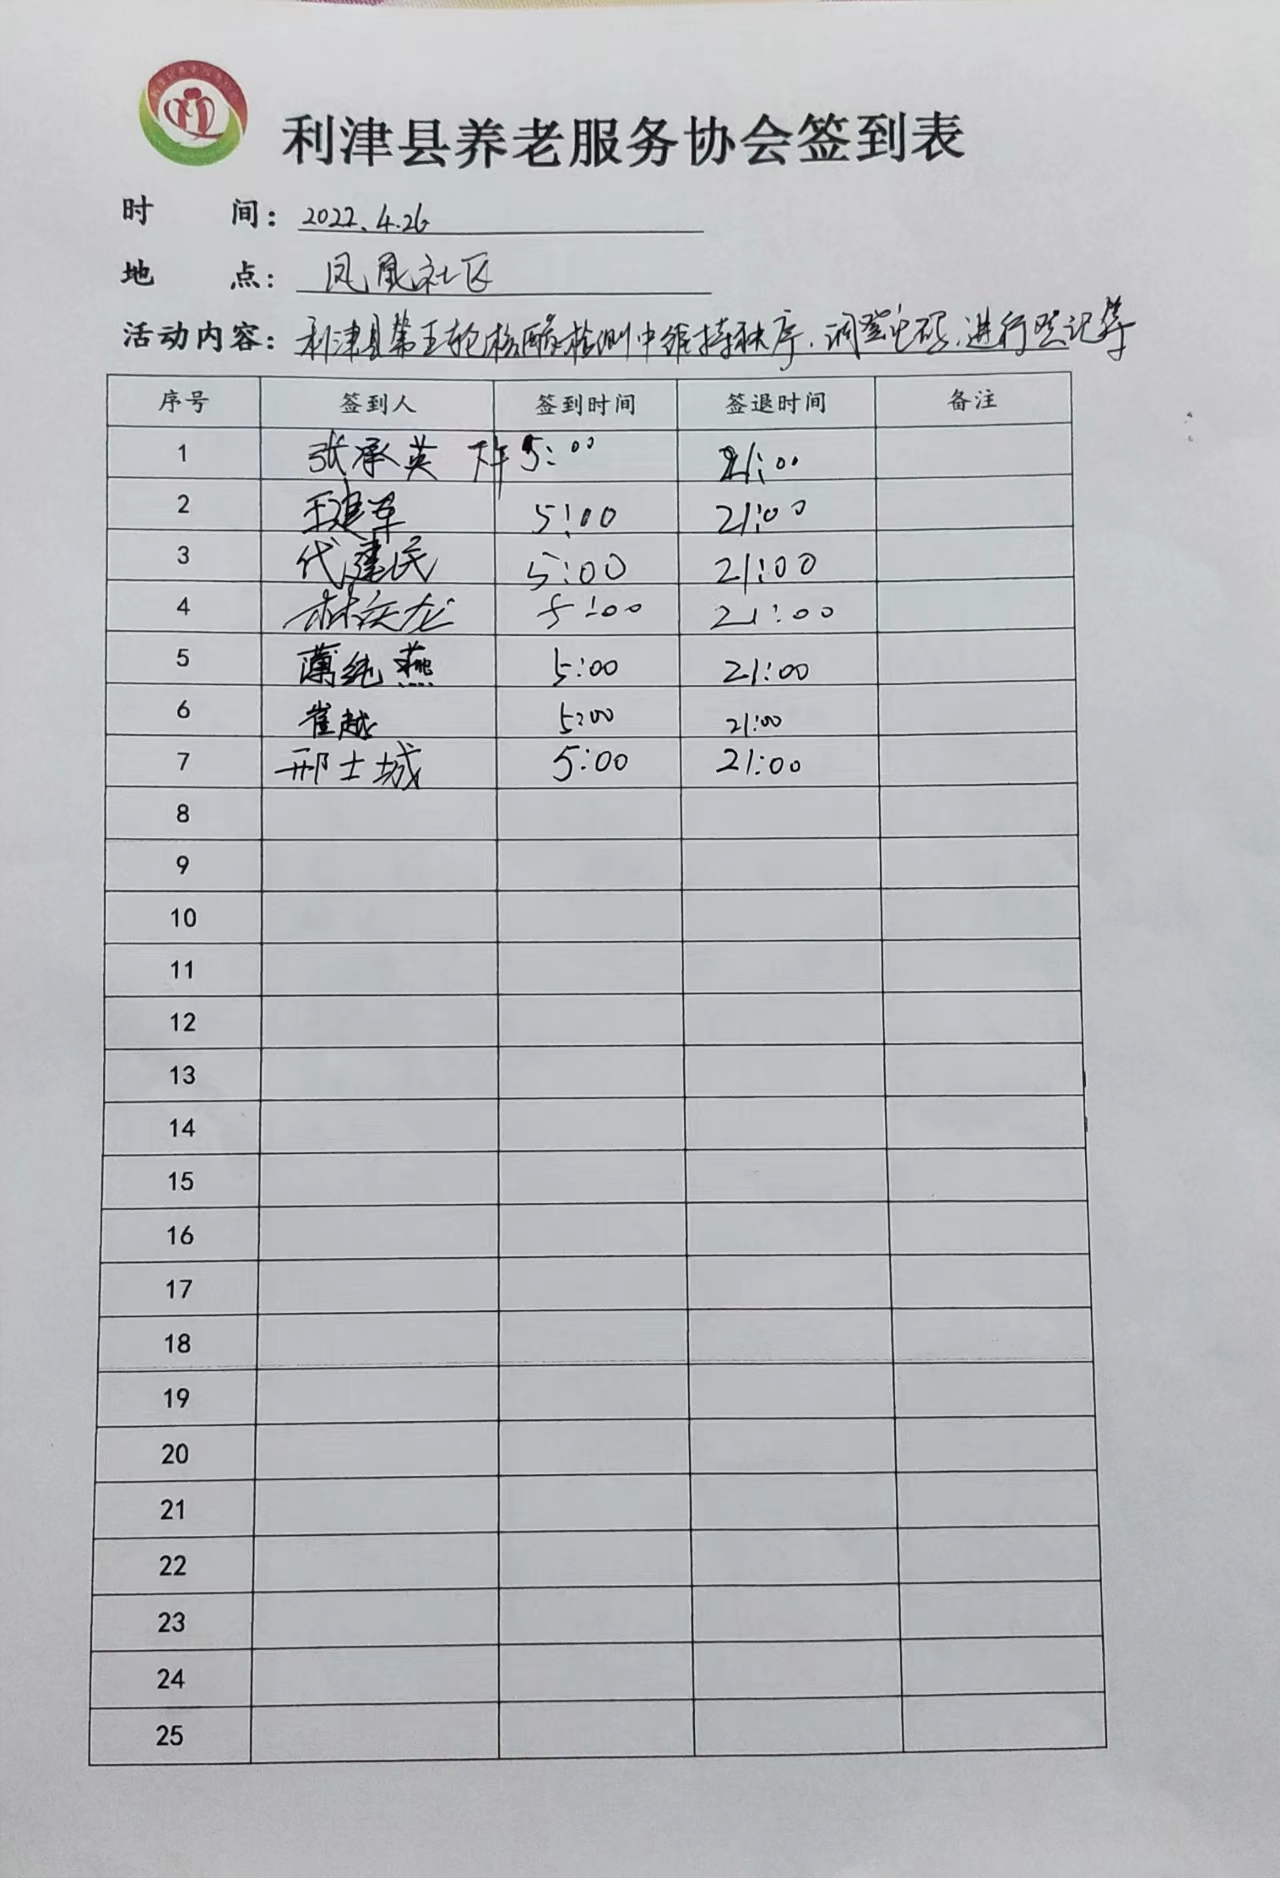 利津县养老服务协会签到表
时 间: 2022.4.26
地 点: 凤凰社区
活动内容: 利津县第五轮核酸检测中维持秩序、调登记码、进行登记等
序号 签到人 签到时间 签退时间 备注
1 张承英 下午5:00 21:00
2 王建军 5:00 21:00
3 代建民 5:00 21:00
4 林庆龙 5:00 21:00
5 蔺纯燕 5:00 21:00
6 崔越 5:00 21:00
7 邢士城 5:00 21:00
8
9
10
11
12
13
14
15
16
17
18
19
20
21
22
23
24
25